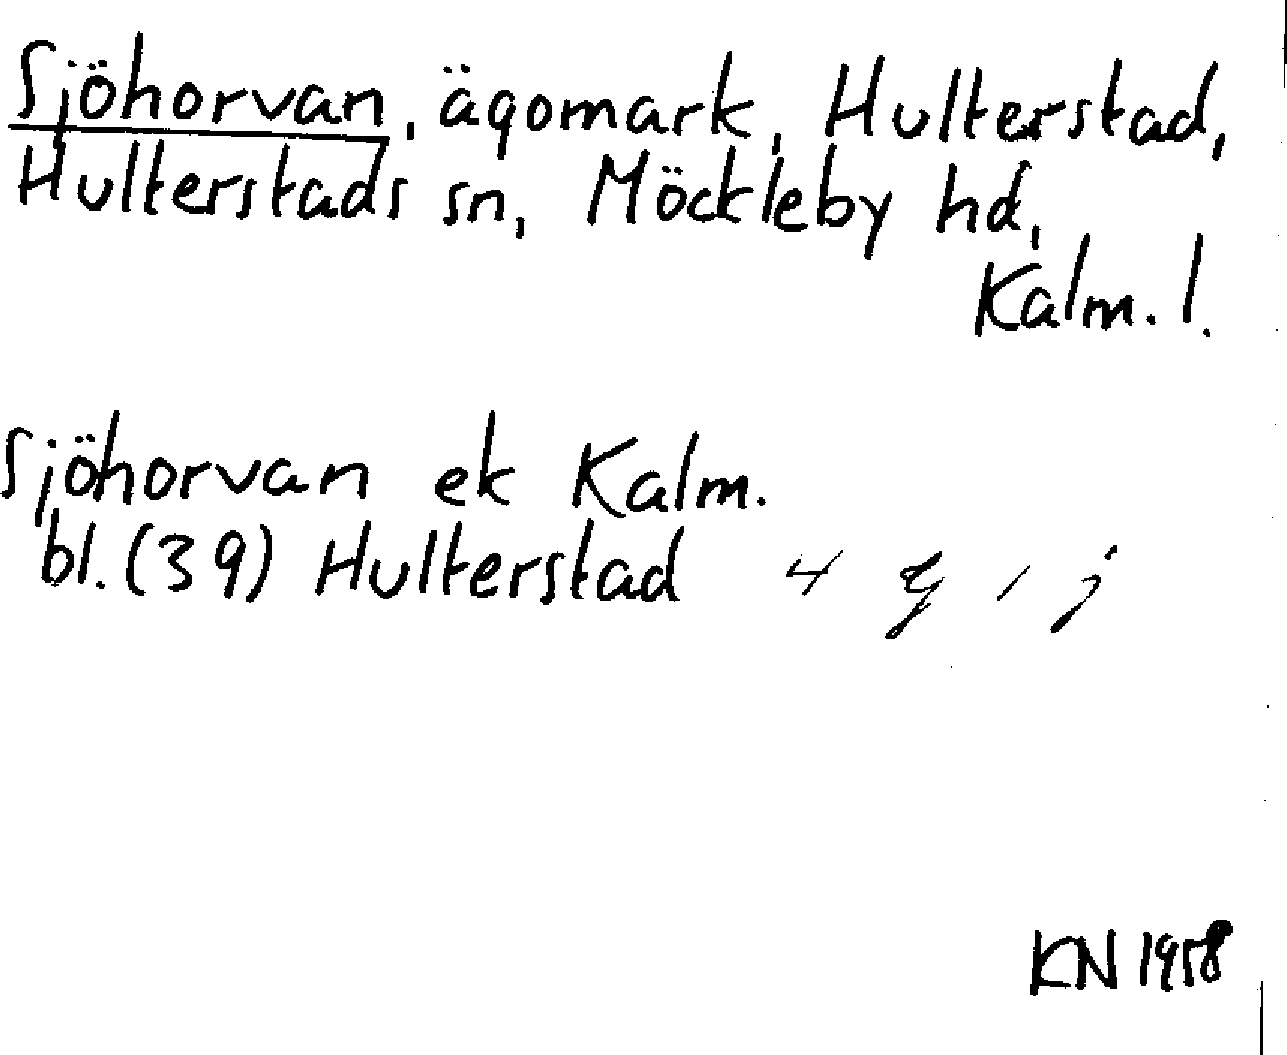 Sjöhorvan, ägomark, Hulterstad,
Hulterstads sn, Möckleby hd,
Kalm. l.
Sjöhorvan ek Kalm.
bl. (39) Hulterstad 4 g 1 j
KN 1958